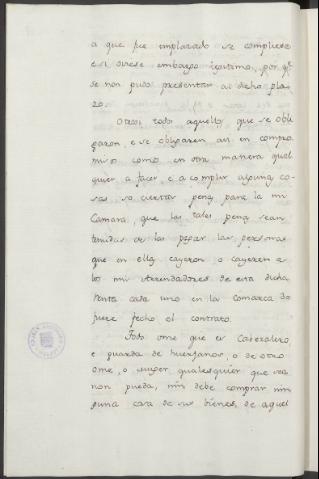 a que fue emplazado se compliese
e si oviese embargo legitimo, por qᵉ
se non pudo presentar al dicho pla-
zo.
Otrosi todo aquello que se obli
garon, e se obligaren asi en compro
miso como en otra manera qual
quier a facer e a complir algunas co-
sas so ciertas penas para la mi
Camara, que las tales penas sean
tenudas de las pagar las personas
que en ellas cayeron o cayeren a
los mis Arrendadores de esta dicha
Renta cada uno en la comarca do
fuere fecho el contrato.
Todo ome que es Cabezalero,
e guarda de huerfanos, o de otro
ome, o muger qualesquier que sea
non pueda, nin debe comprar nin
guna cosa de sus bienes, de aquel